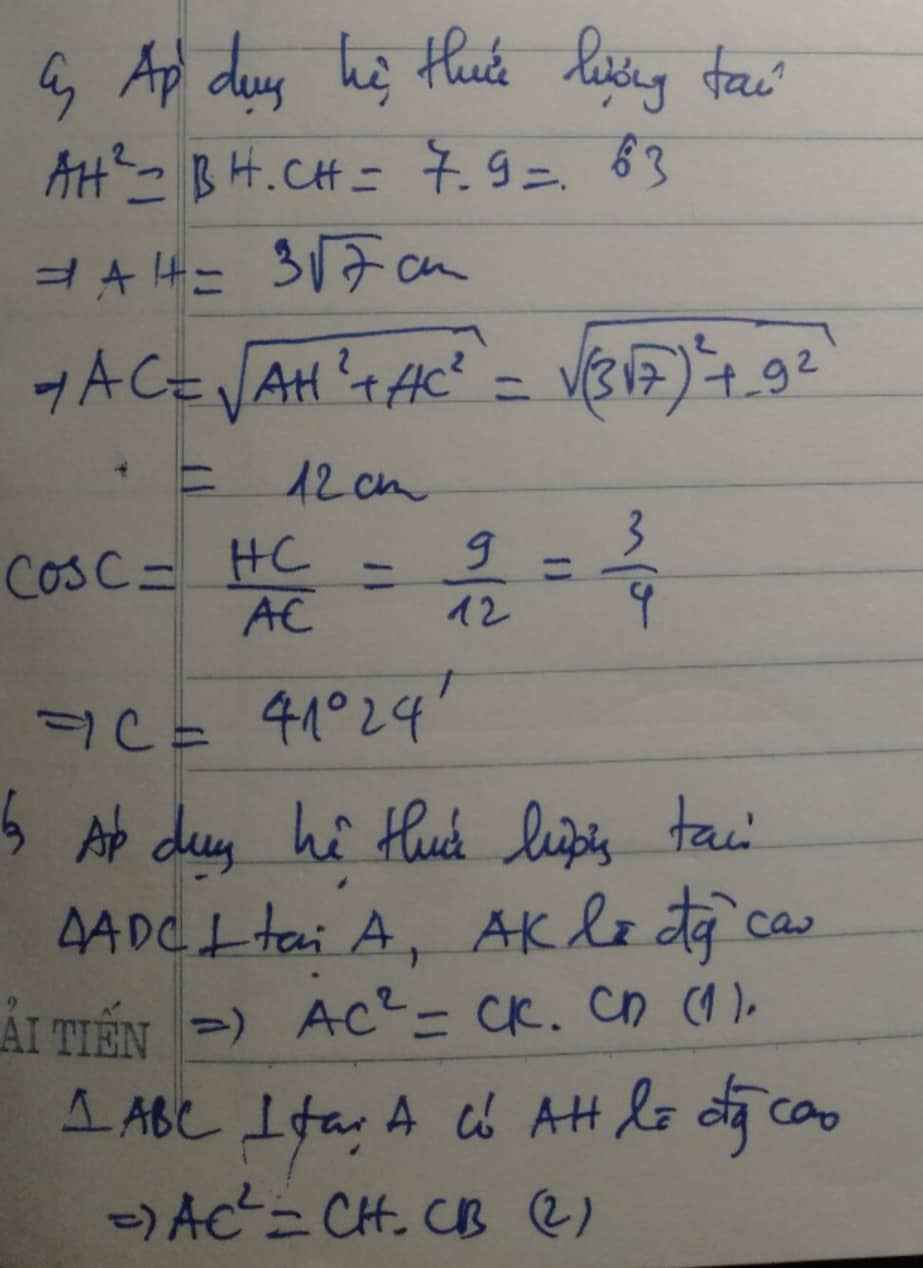 a, Áp dụng hệ thức lượng tại
AH² = BH.CH = 7.9 = 63
⇒ AH = 3√7 cm
⇒ AC = √(AH² + HC²) = √((3√7)² + 9²)
= 12 cm
cosC = HC/AC = 9/12 = 3/4
⇒ C = 41°24'
b, Áp dụng hệ thức lượng tại
ΔADC ⊥ tại A, AK là đg cao
ẢI TIẾN ⇒ AC² = CK. CD (1).
Δ ABC ⊥ tại A có AH là đg cao
⇒ AC² = CH. CB (2)